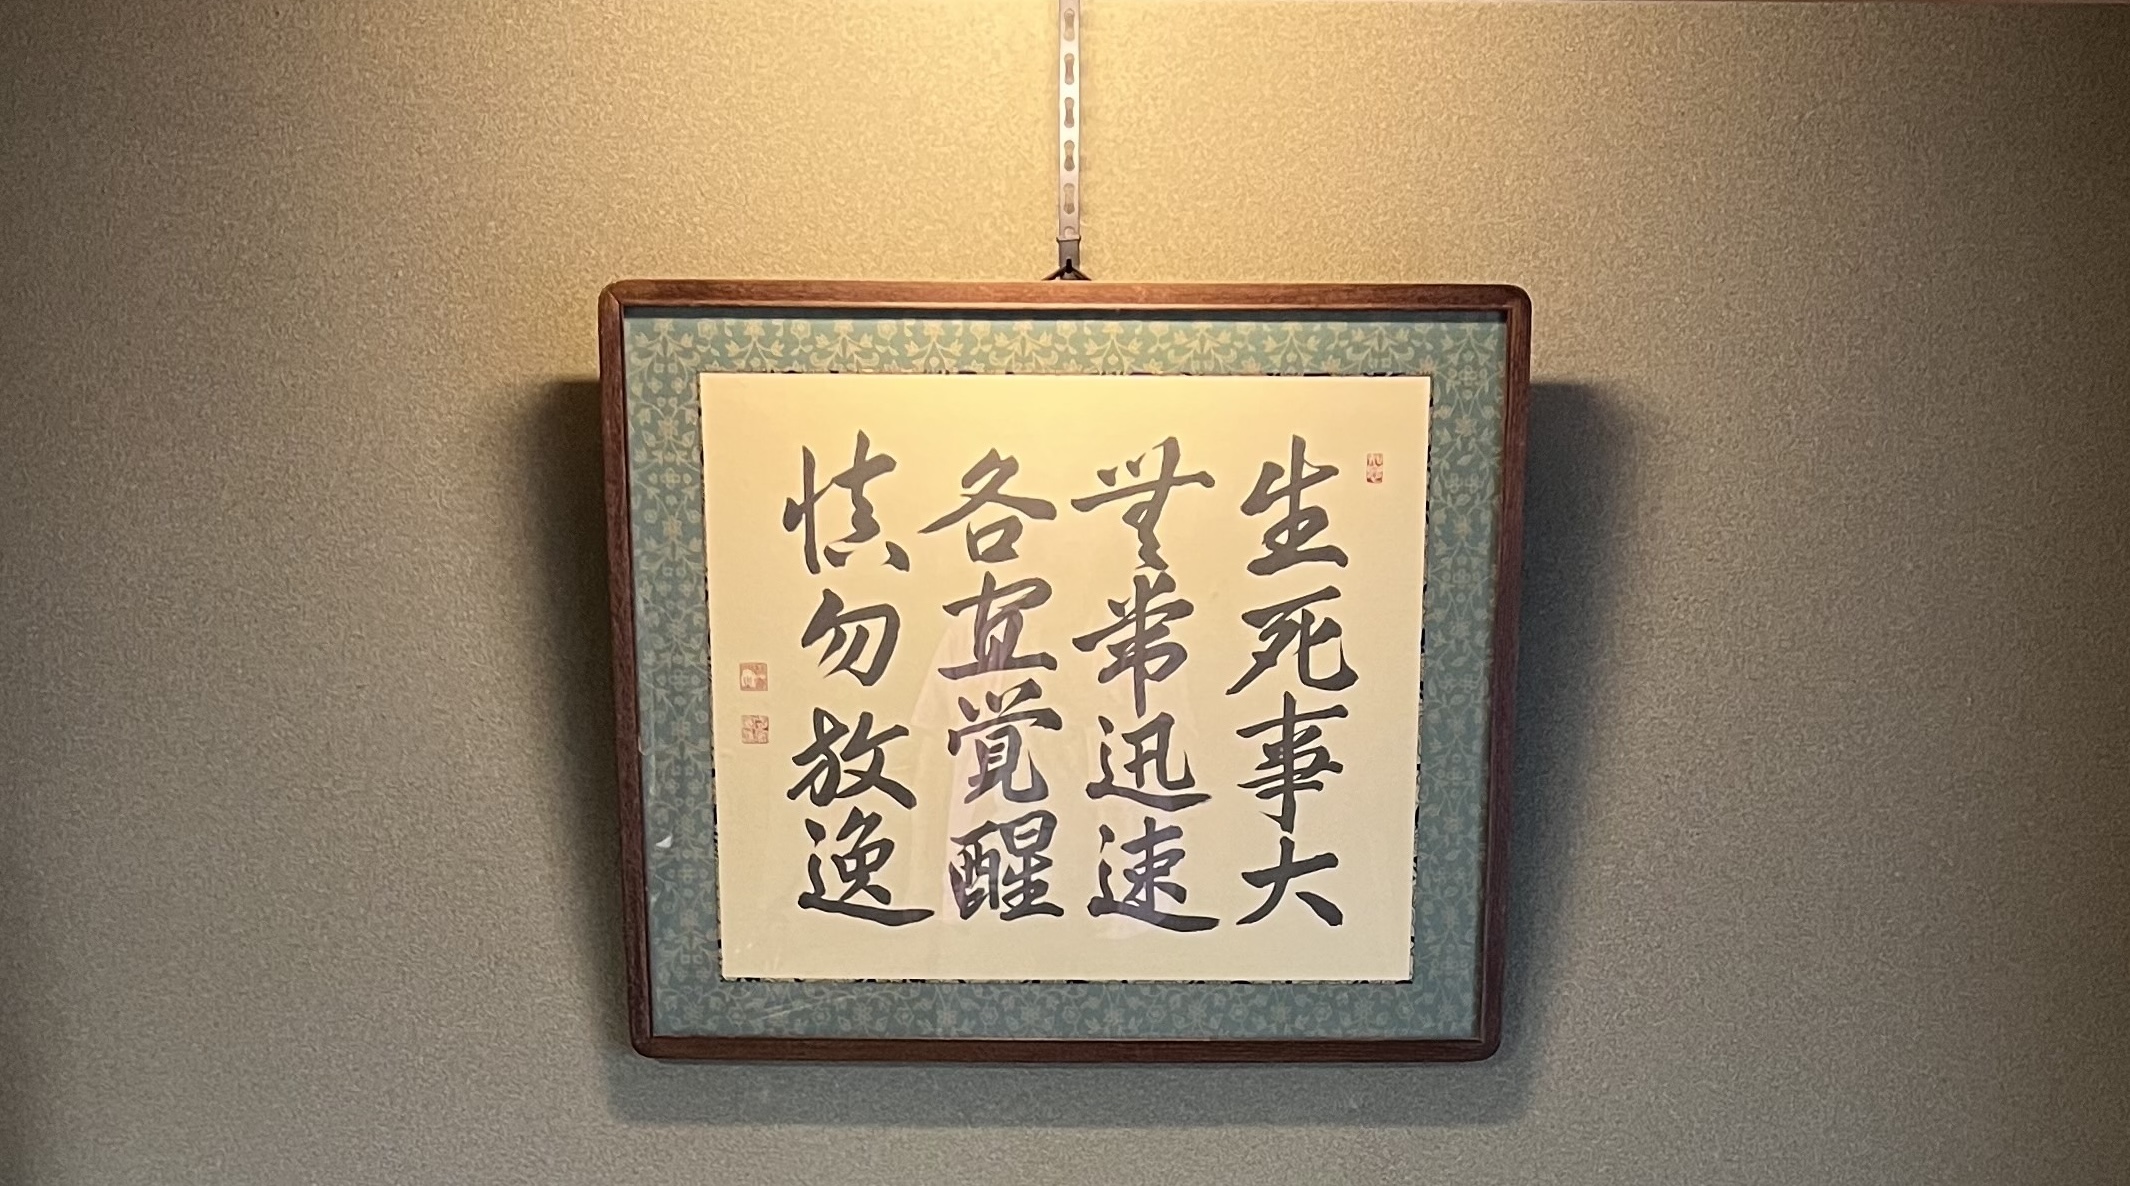 生死事大
無常迅速
各宜覚醒
慎勿放逸